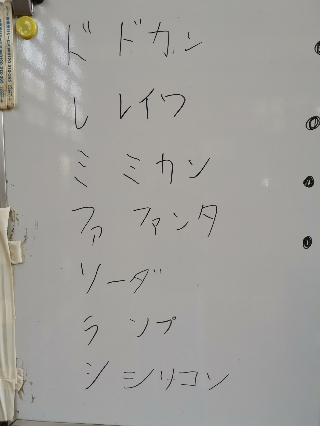 ド ドカン
レ レイワ
ミ ミカン
ファ ファンタ
ソーダ
ラ ンプ
シ シリコン